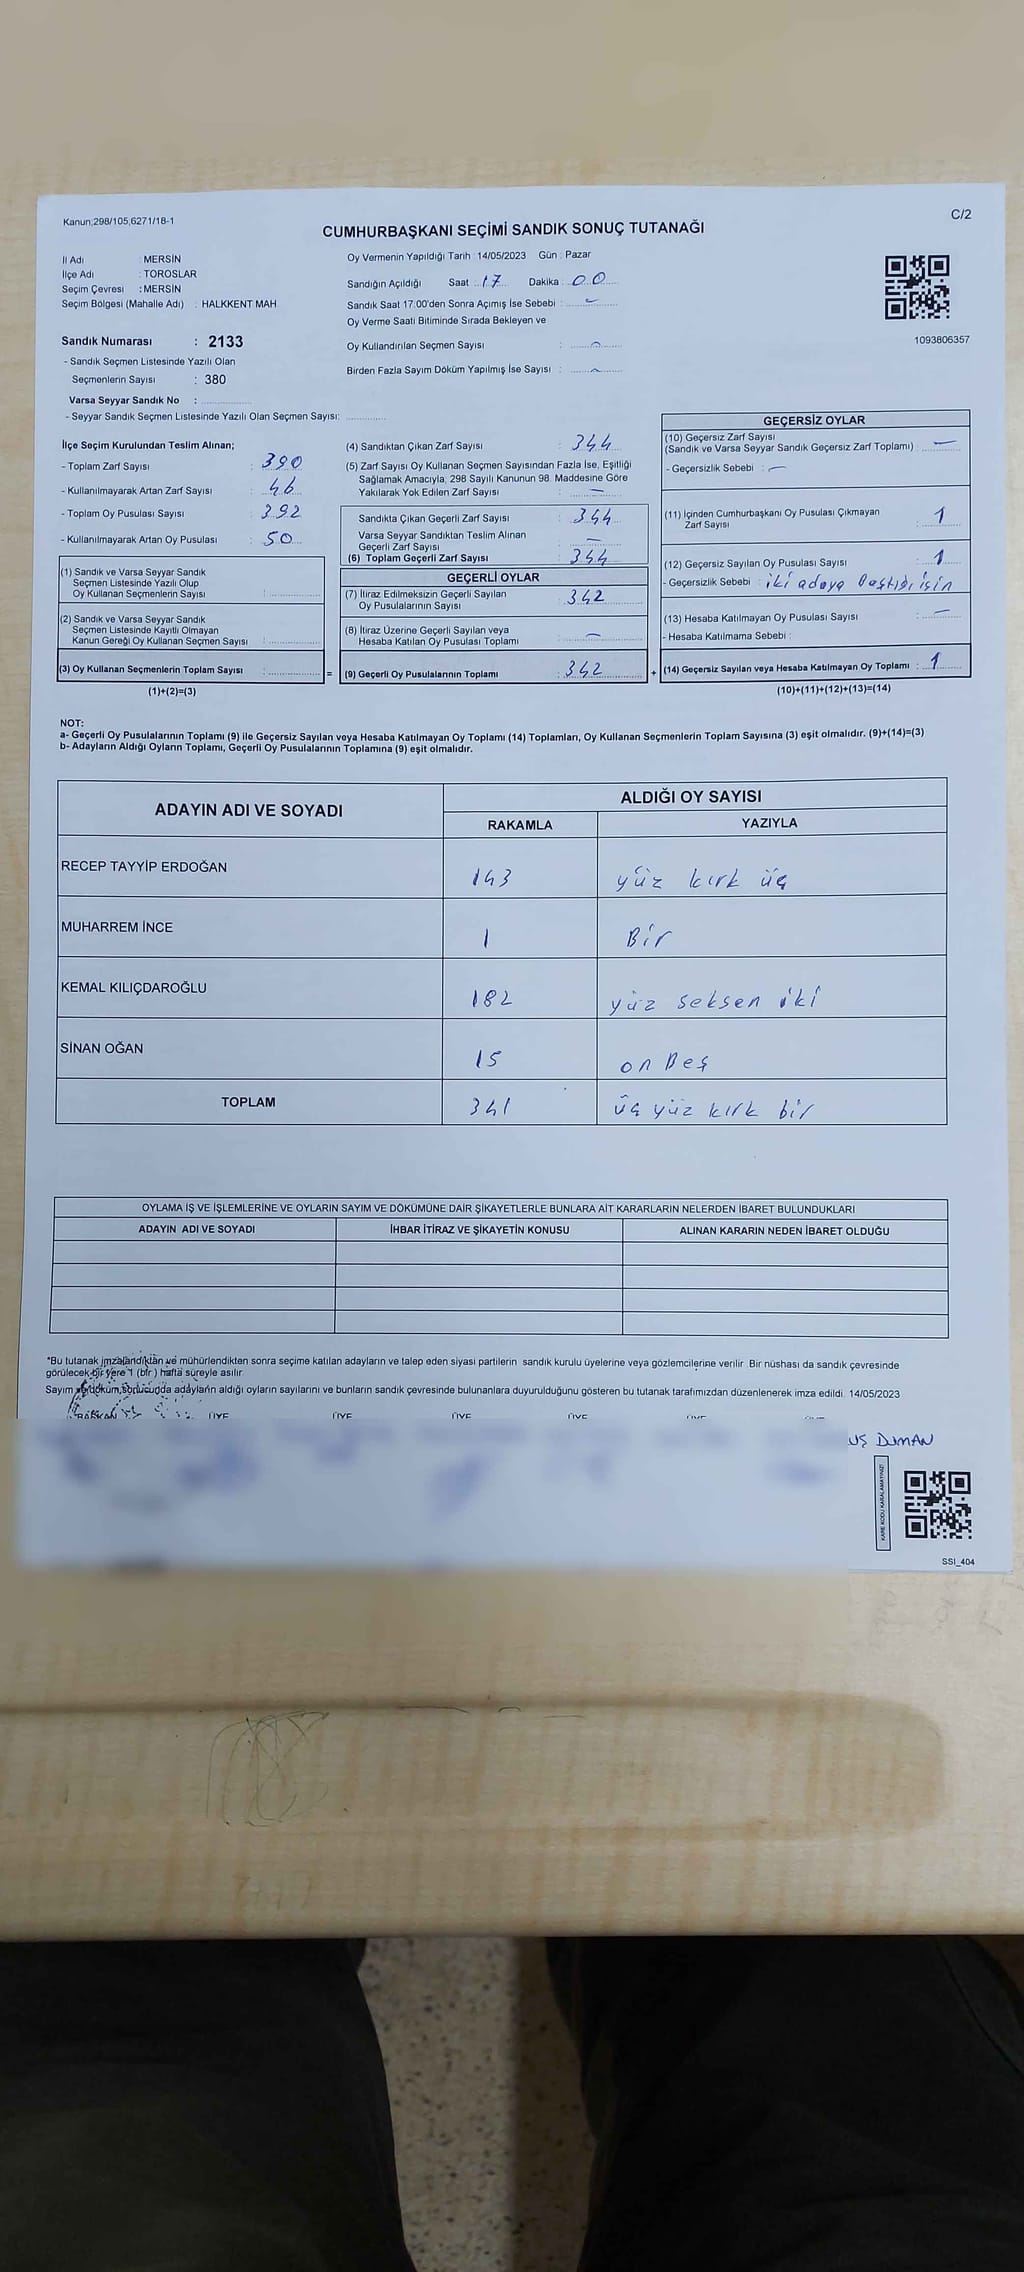 Kanun;298/105,6271/18-1
C/2
CUMHURBAŞKANI SEÇİMİ SANDIK SONUÇ TUTANAĞI
İl Adı : MERSİN
İlçe Adı : TOROSLAR
Seçim Çevresi : MERSİN
Seçim Bölgesi (Mahalle Adı) : HALKKENT MAH
Oy Vermenin Yapıldığı Tarih : 14/05/2023 Gün : Pazar
Sandığın Açıldığı Saat : 17 Dakika : 00
Sandık Saat 17:00'den Sonra Açımış İse Sebebi : -
Oy Verme Saati Bitiminde Sırada Bekleyen ve
Oy Kullandırılan Seçmen Sayısı : -
Birden Fazla Sayım Döküm Yapılmış İse Sayısı : -
1093806357
Sandık Numarası : 2133
- Sandık Seçmen Listesinde Yazılı Olan
Seçmenlerin Sayısı : 380
Varsa Seyyar Sandık No :
- Seyyar Sandık Seçmen Listesinde Yazılı Olan Seçmen Sayısı:
İlçe Seçim Kurulundan Teslim Alınan;
- Toplam Zarf Sayısı : 390
- Kullanılmayarak Artan Zarf Sayısı : 46
- Toplam Oy Pusulası Sayısı : 392
- Kullanılmayarak Artan Oy Pusulası : 50
(1) Sandık ve Varsa Seyyar Sandık
Seçmen Listesinde Yazılı Olup
Oy Kullanan Seçmenlerin Sayısı :
(2) Sandık ve Varsa Seyyar Sandık
Seçmen Listesinde Kayıtlı Olmayan
Kanun Gereği Oy Kullanan Seçmen Sayısı :
(3) Oy Kullanan Seçmenlerin Toplam Sayısı :
(1)+(2)=(3)
(4) Sandıktan Çıkan Zarf Sayısı : 344
(5) Zarf Sayısı Oy Kullanan Seçmen Sayısından Fazla İse, Eşitliği
Sağlamak Amacıyla, 298 Sayılı Kanunun 98. Maddesine Göre
Yakılarak Yok Edilen Zarf Sayısı : -
Sandıkta Çıkan Geçerli Zarf Sayısı : 344
Varsa Seyyar Sandıktan Teslim Alınan
Geçerli Zarf Sayısı : -
(6) Toplam Geçerli Zarf Sayısı : 344
GEÇERLİ OYLAR
(7) İtiraz Edilmeksizin Geçerli Sayılan
Oy Pusulalarının Sayısı : 342
(8) İtiraz Üzerine Geçerli Sayılan veya
Hesaba Katılan Oy Pusulası Toplamı : -
= (9) Geçerli Oy Pusulalarının Toplamı : 342
GEÇERSİZ OYLAR
(10) Geçersiz Zarf Sayısı
(Sandık ve Varsa Seyyar Sandık Geçersiz Zarf Toplamı) : -
- Geçersizlik Sebebi : -
(11) İçinden Cumhurbaşkanı Oy Pusulası Çıkmayan
Zarf Sayısı : 1
(12) Geçersiz Sayılan Oy Pusulası Sayısı : 1
- Geçersizlik Sebebi : iki adaya bastığı için
(13) Hesaba Katılmayan Oy Pusulası Sayısı : -
- Hesaba Katılmama Sebebi :
+ (14) Geçersiz Sayılan veya Hesaba Katılmayan Oy Toplamı : 1
(10)+(11)+(12)+(13)=(14)
NOT:
a- Geçerli Oy Pusulalarının Toplamı (9) ile Geçersiz Sayılan veya Hesaba Katılmayan Oy Toplamı (14) Toplamları, Oy Kullanan Seçmenlerin Toplam Sayısına (3) eşit olmalıdır. (9)+(14)=(3)
b- Adayların Aldığı Oyların Toplamı, Geçerli Oy Pusulalarının Toplamına (9) eşit olmalıdır.
ADAYIN ADI VE SOYADI
ALDIĞI OY SAYISI
RAKAMLA YAZIYLA
RECEP TAYYİP ERDOĞAN 143 yüz kırk üç
MUHARREM İNCE 1 Bir
KEMAL KILIÇDAROĞLU 182 yüz seksen iki
SİNAN OĞAN 15 on Beş
TOPLAM 341 üç yüz kırk bir
OYLAMA İŞ VE İŞLEMLERİNE VE OYLARIN SAYIM VE DÖKÜMÜNE DAİR ŞİKAYETLERLE BUNLARA AİT KARARLARIN NELERDEN İBARET BULUNDUKLARI
ADAYIN ADI VE SOYADI İHBAR İTİRAZ VE ŞİKAYETİN KONUSU ALINAN KARARIN NEDEN İBARET OLDUĞU
*Bu tutanak imzalandıktan ve mühürlendikten sonra seçime katılan adayların ve talep eden siyasi partilerin sandık kurulu üyelerine veya gözlemcilerine verilir. Bir nüshası da sandık çevresinde
görülecek bir yere 1 (bir) hafta süreyle asılır.
Sayım ve döküm sonucunda adayların aldığı oyların sayılarını ve bunların sandık çevresinde bulunanlara duyurulduğunu gösteren bu tutanak tarafımızdan düzenlenerek imza edildi. 14/05/2023
BAŞKAN ÜYE ÜYE ÜYE ÜYE ÜYE ÜYE
UŞ DUMAN
KARE KODU KARALAMAYINIZ!
SSI_404